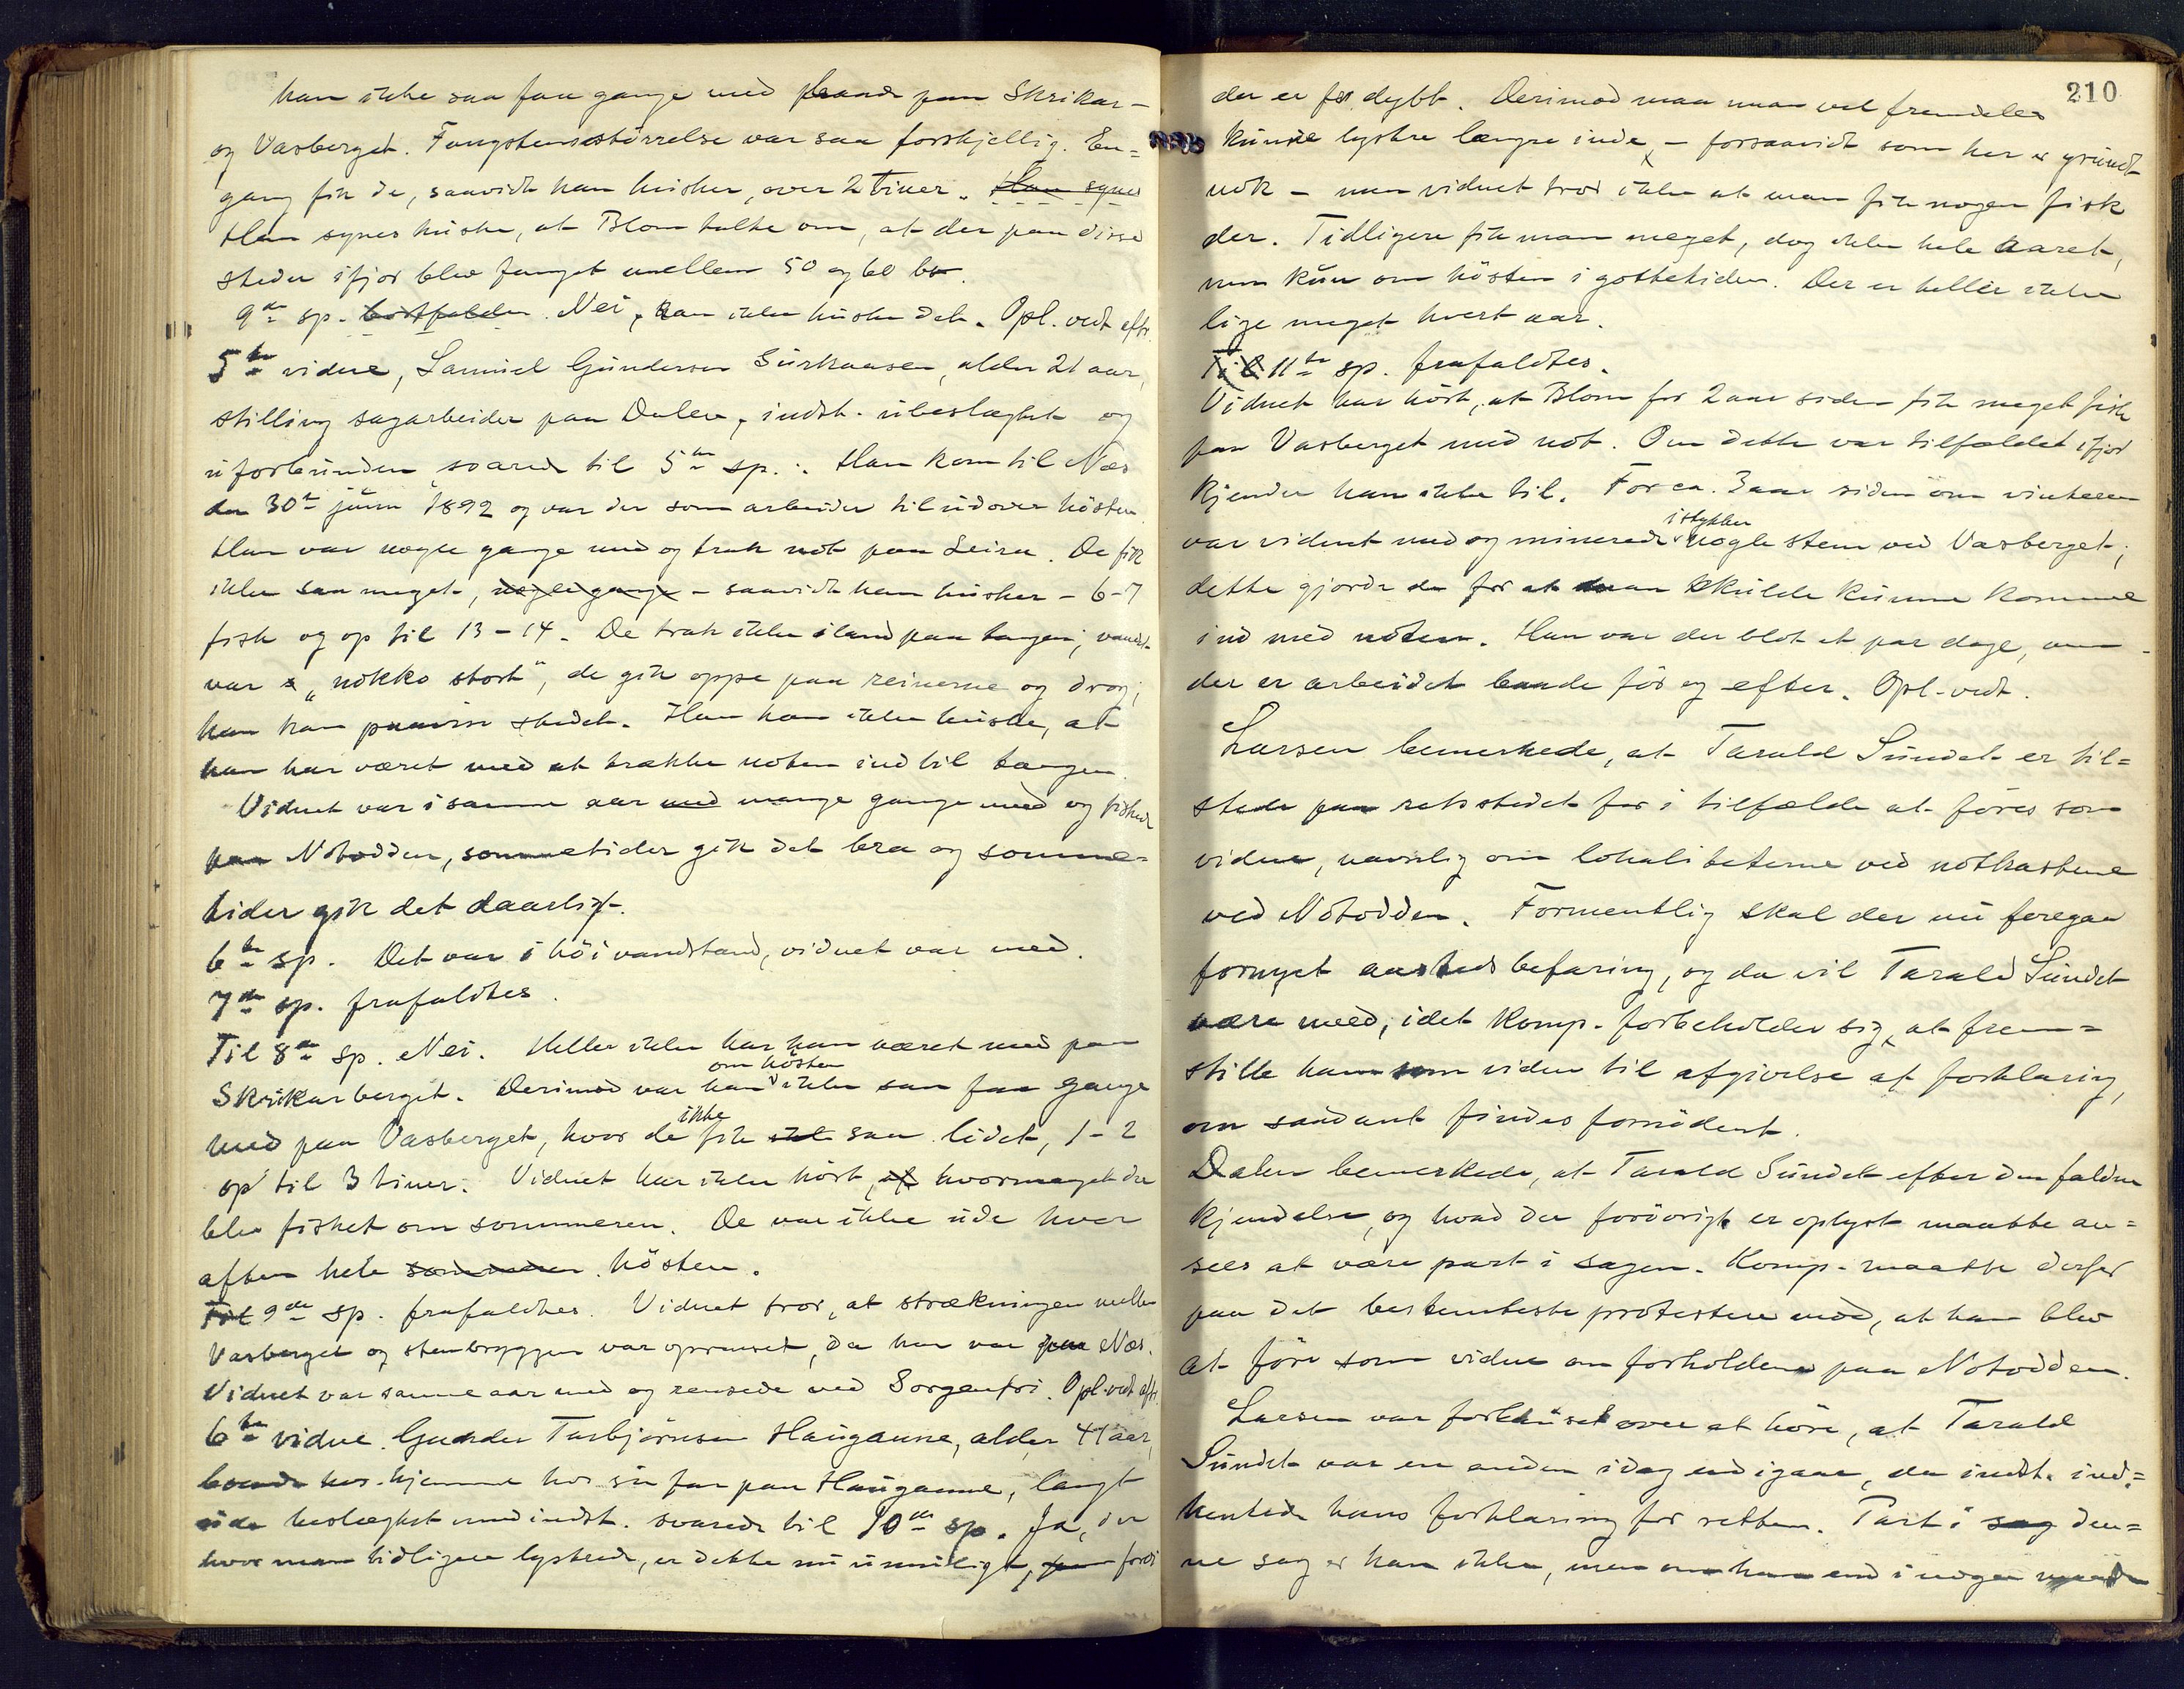 han ikke saa faa gange med baade paa Skrikar-
og Vasberget. Fangstens størrelse var saa forskjellig. En=
gang fik de, saavidt han husker, over 2 tiner. Han synes
Han synes huske, at Blom talte om, at der paa disse
steder ifjor blev fanget mellem 50 og 60
9de sp. bortfalder. Nei, kan ikke huske det. Opl. vedt. eftr.
5te vidne, Samuel Gundersen Surkaasen, alder 21 aar,
stilling sagarbeider paa Dalen, indst. ubeslægtet og
uforbunden svarede til 5te sp.: Han kom til Næs
den 30te juni 1892 og var der som arbeider til udover høsten
Han var nogle gange med og trak not paa Leira. De fik
ikke saa meget, nogle gange - saavidt han husker - 6-7
fisk og op til 13-14. De trak ikke iland paa tangen; vandet
var "nokko stort", de gik oppe paa reinerne og drog;
han kan paavise stedet. Han kan ikke huske, at
han har været med at trække noten ind til tangen.
Vidnet var i samme aar med mange gange med og fiskede
paa Notodden, sommetider gik det bra og somme=
tider gik det daarligt.
6te sp. Det var i høi vandstand, vidnet var med.
7de sp. frafaldtes.
Til 8de sp. Nei. Heller ikke har han været med paa
om høsten
Skrikarberget. Derimod var han ikke saa faa gange
ikke
med paa Vasberget, hvor de fik saa lidet, 1-2
op til 3 tiner. Vidnet har ikke hørt, at hvormeget der
blev fisket om sommeren. De var ikke ude hver
aften hele sommeren høsten.
Til 9de sp. frafaldtes. Vidnet tror, at strækningen mellem
Vasberget og stenbryggen var oprenset, da han var paa Næs.
Vidnet var samme aar med og rensede ved Sorgenfri. Opl. vedt. eftr.
6te vidne. Gunder Torbjørnsen Hauganne, alder 41 aar,
boende hos hjemme hos sin far paa Hauganne, langt
ude beslægtet med indst. svarede til 10de sp. Ja, der
hvor man tidligere lystrede, er dette nu umuligt, fordi
210
der er for dybt. Derimod maa man vel fremdeles
kunne lystre længre inde, - forsaavidt som her er grundt
nok - men vidnet tror ikke at man fik nogen fisk
der. Tidligere fik man meget, dog ikke hele aaret,
men kun om høsten i gottetiden. Der er heller ikke
lige meget hvert aar.
Til 11te sp. frafaldtes.
Vidnet har hørt, at Blom for 2 aar siden fik meget fisk
paa Vasberget med not. Om dette var tilfældet ifjor
kjender han ikke til. For ca. 3 aar siden om vinteren
istykker
var vidnet med og minerede nogle stene ved Vasberget;
dette gjorde de for at man skulde kunne komme
ind med noten. Han var der blot et par dage, men
der er arbeidet baade før og efter. Opl. vedt.
Larsen bemerkede, at Tarald Sundet er til=
stede paa retsstedet for i tilfælde at føres som
vidne, navnlig om lokaliteterne ved notkastene
ved Notodden. Formentlig skal der nu foregaa
fornyet aastedsbefaring, og da vil Tarald Sundet
være med, idet komp. forbeholder sig, at frem=
stille ham som vidne til afgivelse af forklaring,
om saadant findes fornødent.
Dalen bemerkede, at Tarald Sundet efter den faldne
kjendelse, og hvad der forøvrigt er oplyst maatte an=
sees at være part i sagen. Komp. maatte derfor
paa det bestemteste protestere mod, at han blev
at føre som vidne om forholdene paa Notodden.
Larsen var forbauset over at høre, at Tarald
Sundet var en anden idag end igaar, da indst. ind=
hentede hans forklaring for retten. Part i sag den=
ne sag er han ikke, men om han end i nogen maade